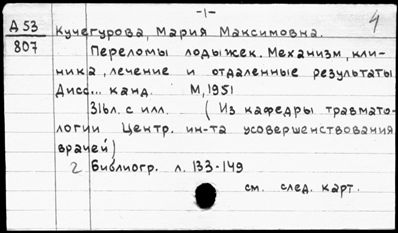 -1-
4
А53
807
Кучегурова, Мария Максимовна.
Переломы лодыжек. Механизм, кли-
ника, лечение и отдаленные результаты.
Дисс... канд. М, 1951
316л. с илл. (Из кафедры травмато-
логии Центр. ин-та усовершенствования
врачей)
2 Библиогр. л. 133-149
см. след. карт.